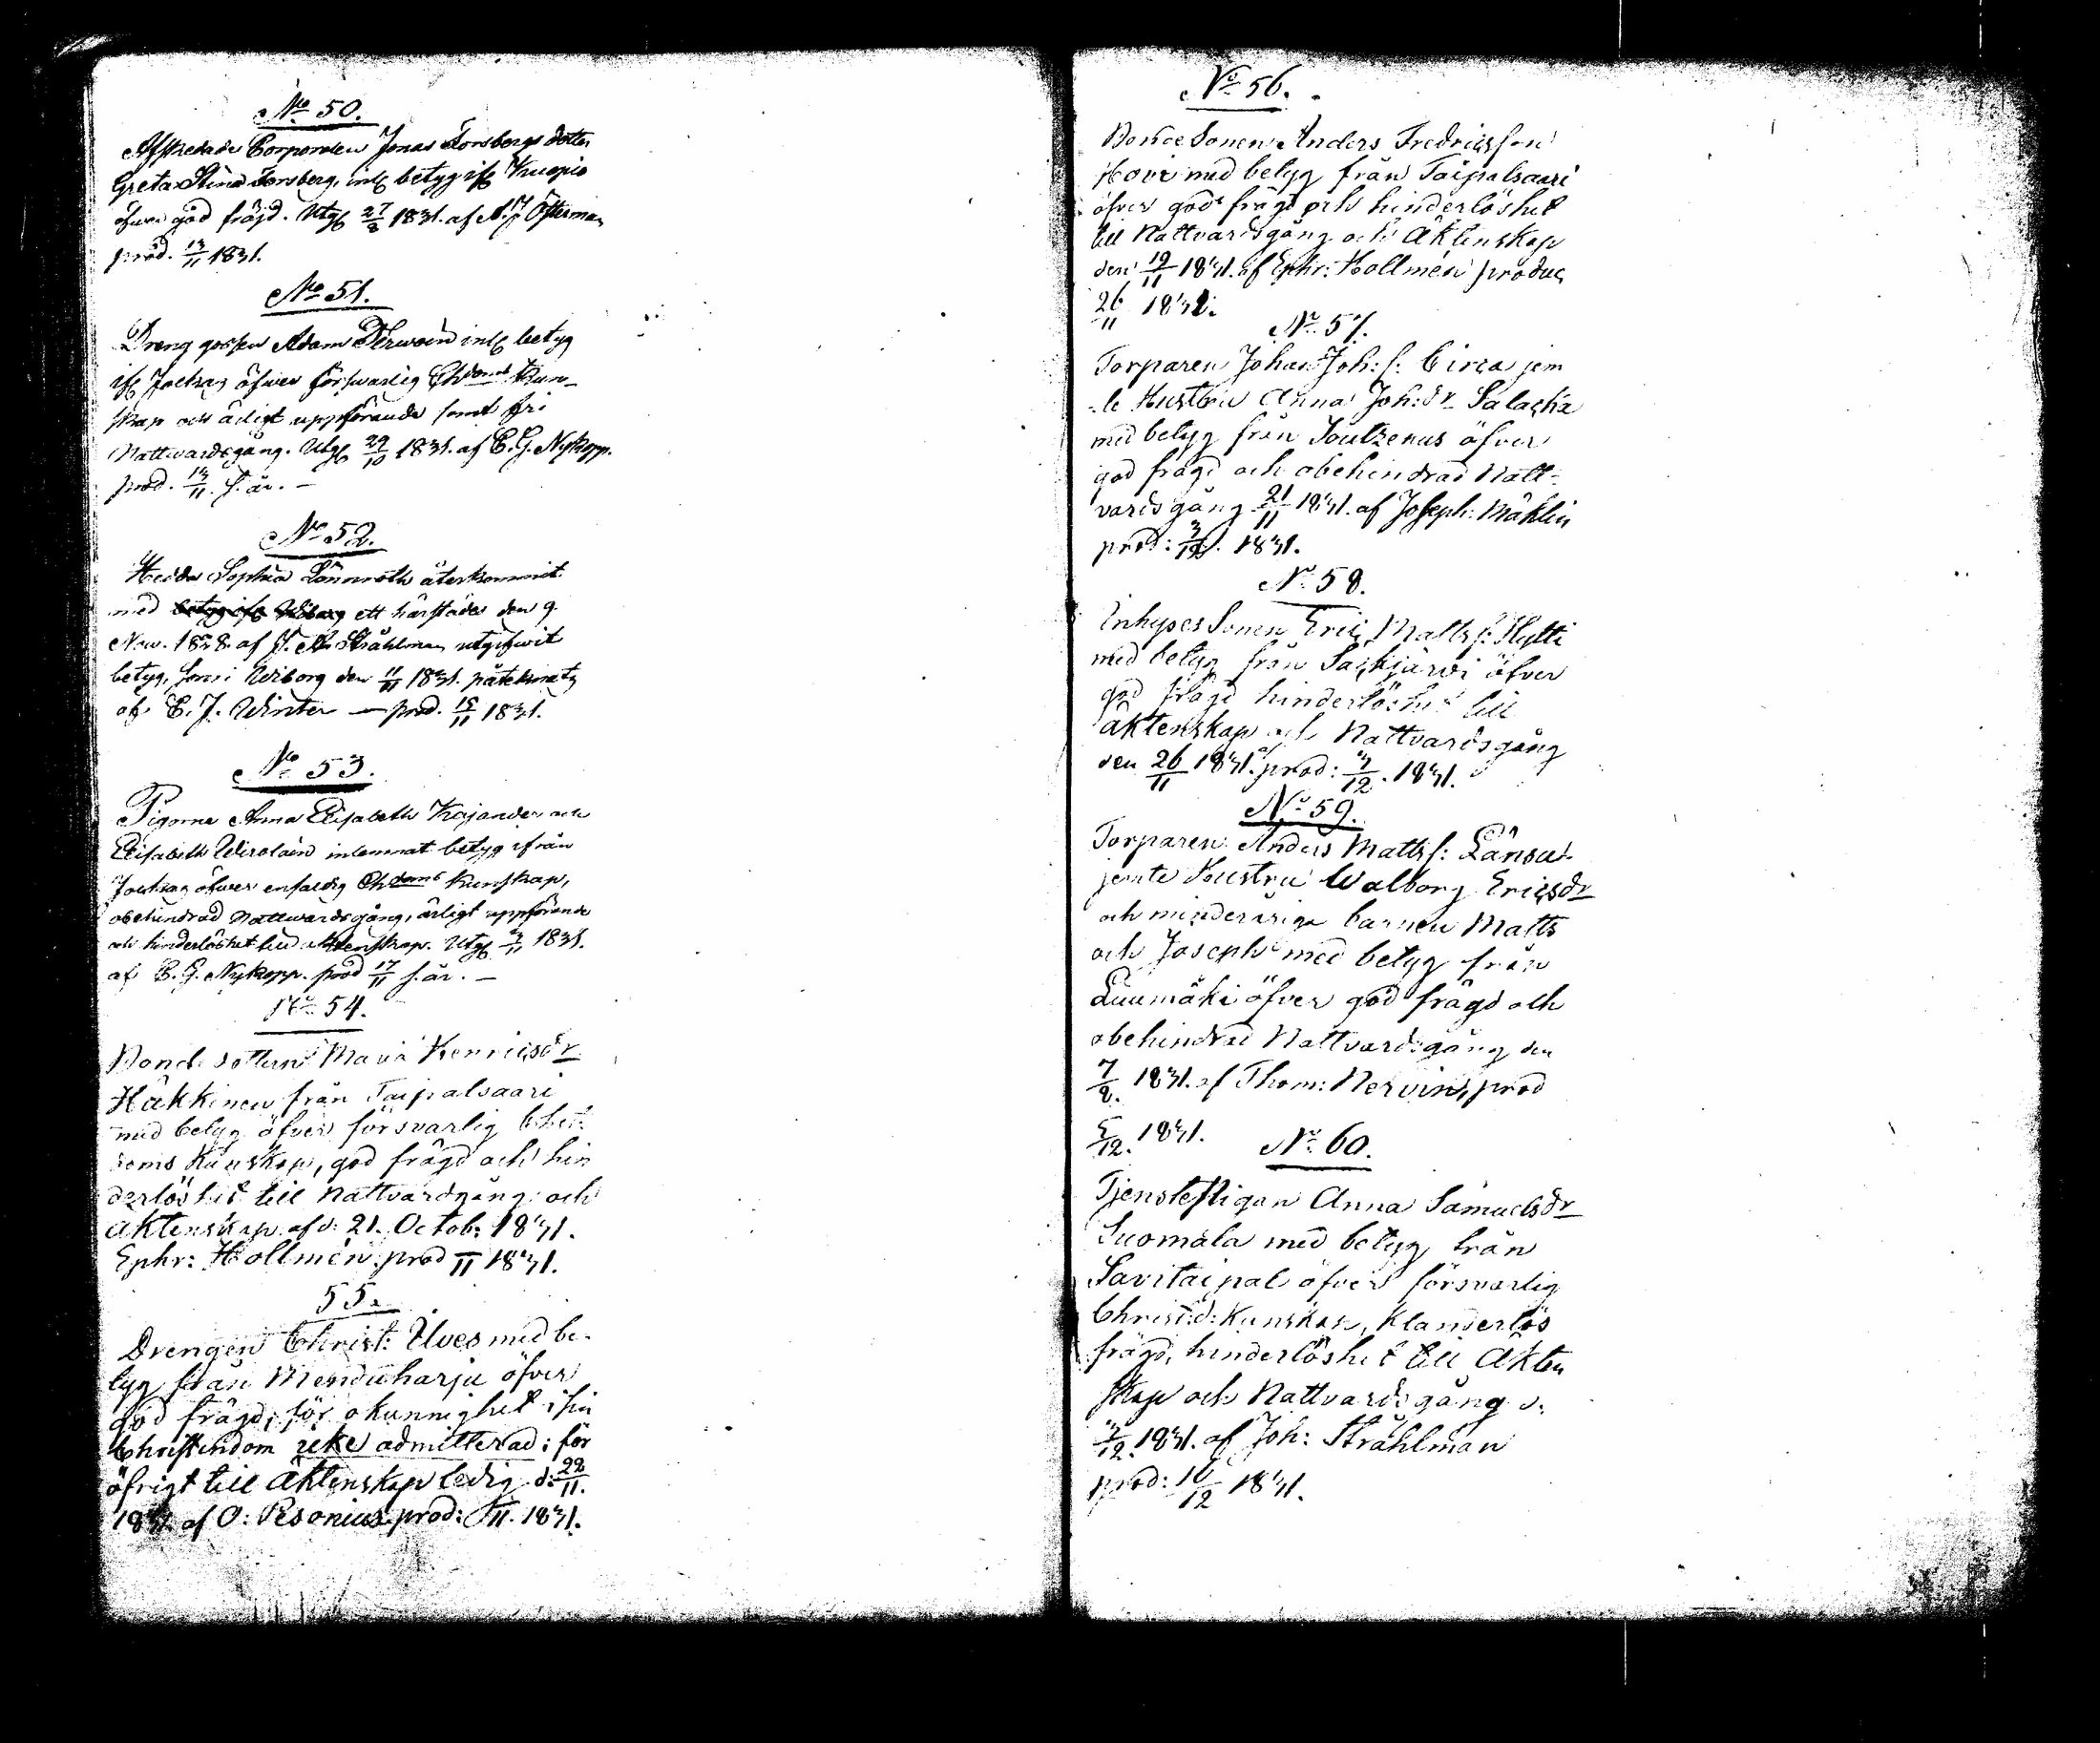 No 50.
Afskedade Corporalen Jonas Forsbergs dotter
Greta Stina Forsberg, inl betyg ifr Kuopio
öfver god frägd. Utg 27/8 1831. af A. J. Österman
prod. 13/11 1831.
No 51.
Dreng gossen Adam inl betyg
ifr Jockas öfwer försvarlig Chdoms Kun-
skap och ärligt uppförande samt fri
Nattvardsgång. Utg 29/10 1831. af E. G. Nykopp.
prod. 13/11. s. år. —
No 52.
Hedda Sophia Lönnroth återkommit
med ett härstädes den 9
Nov. 1828. af J. Stråhlman utgifwit
betyg, som i Wiborg den 11/11 1831. påtecknats
af E. J. Winter — prod. 15/11 1831.
No 53.
Pigorna Anna Elisabeth Kajander och
Elisabeth Wirolain inlemnat betyg ifrån
Jockas öfwer enfaldig Chdoms Kunskap,
obehindrad Nattwardsgång, ärligt uppförande
och hinderlöshet till äktenskap. Utg 3/11 1831.
af E. G. Nykopp. prod 17/11 s. år. —
No 54.
Bondedottern Maria Henricsdr
Häkkinen från Taipalsaari
med betyg öfver försvarlig Christ-
doms Kunskap, god frägd och hin
derlöshet till Nattvardgång och
äktenskap af d: 21. Octob: 1831.
Ephr: Hollmén. prod 11 1831.
55.
Drengen Christ: Ilves med be-
tyg från Menduharju öfver
god frägd; för okunnighet i sin
Christendom icke admitterad; för
öfrigt till Äktenskap ledig d: 22/11.
1831. af O: Pesonius. prod: 11. 1831.
No 56.
Bonde Sonen Anders Fredricsson
Hovi med betyg från Taipalsaari
öfver god frägd och hinderlöshet
till Nattvardsgång och Äktenskap
den 19/11 1831. af Ephr: Hollmén produc
26/11 1831.
No 57.
Torparen Johan Joh: s: Circa jem
-te Hustru Anna Joh: dr
med betyg från Joutzenus öfver
god frägd och obehindrad Natt-
vardsgång 21/11 1831. af Joseph: Mäklin
prod: 3/12. 1831.
No 58.
Inhyses Sonen Eric Matts s: Hytti
med betyg från Säckjärvi öfver
god frägd hinderlöshet till
äktenskap och Nattvardsgång
den 26/11 1831. prod: 3/12. 1831.
No 59.
Torparen Anders Matts s: Länsu
jemte Hustru Walborg Ericsdr
och minderåriga barnen Matts
och Joseph med betyg från
Luumäki öfver god frägd och
obehindrad Nattvardsgång den
7/8. 1831. af Thom: Nervin, prod
5/12. 1831.
No 60.
Tjenstepigan Anna Samuelsdr
Suomala med betyg från
Savitaipal öfver försvarlig
Christ: d: Kunskap, klanderlös
frägd, hinderlöshet till Äkten
skap och Nattvardsgång d.
3/12. 1831. af Joh: Stråhlman
prod: 10/12 1831.